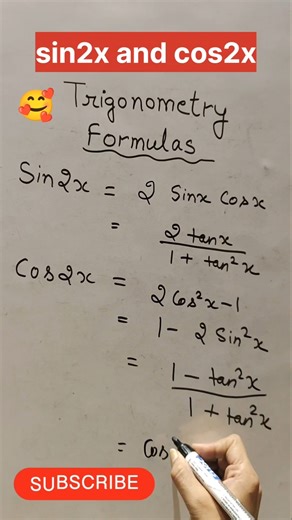 sin2x and cos2x
Trigonometry
Formulas
Sin2x = 2 Sinx Cosx
= 2 tanx / 1 + tan²x
Cos2x =
2Cos²x-1
= 1 - 2 Sin²x
= 1 - tan²x / 1 + tan²x
= Cos
SUBSCRIBE